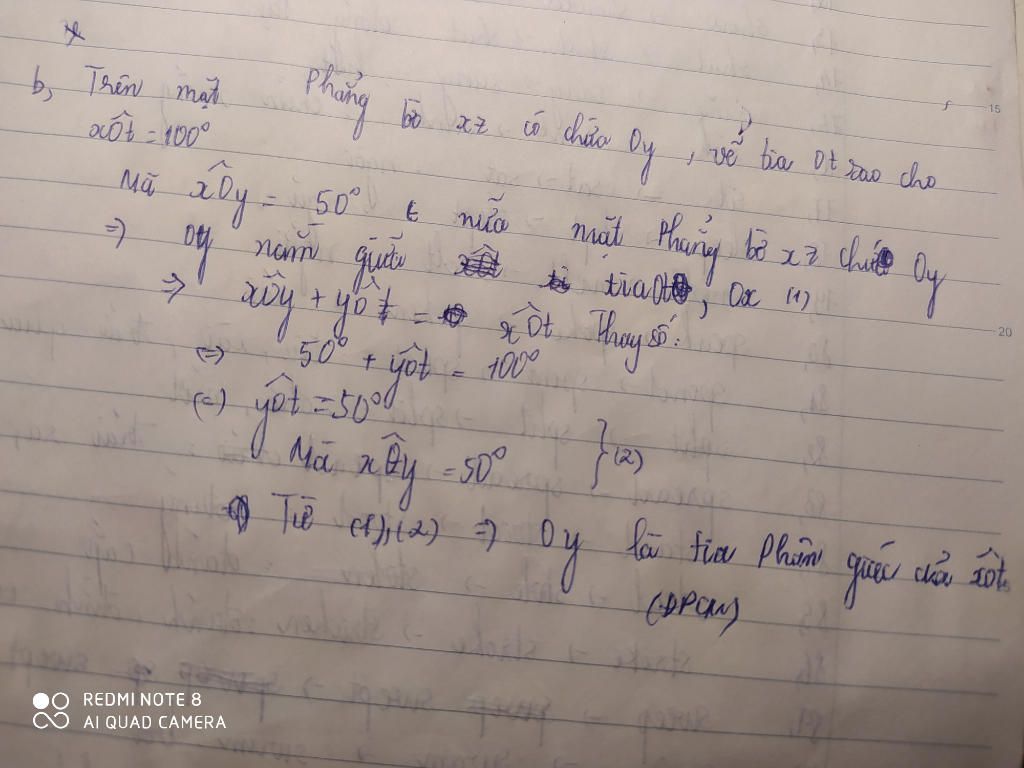 b, Trên mặt Phẳng bờ xz có chứa Oy, vẽ tia Ot sao cho
xÔt = 100°
Mà xÔy = 50° ∈ nửa mặt phẳng bờ xz chứa Oy
=> Oy nằm giữa tia Ot, Ox (1)
=> xÔy + yÔt = xÔt Thay số:
(=) 50° + yÔt = 100°
(=) yÔt = 50°
Mà xÔy = 50° } (2)
Từ (1), (2) => Oy là tia Phân giác của xÔt
(ĐPCM)
15
20
REDMI NOTE 8
AI QUAD CAMERA